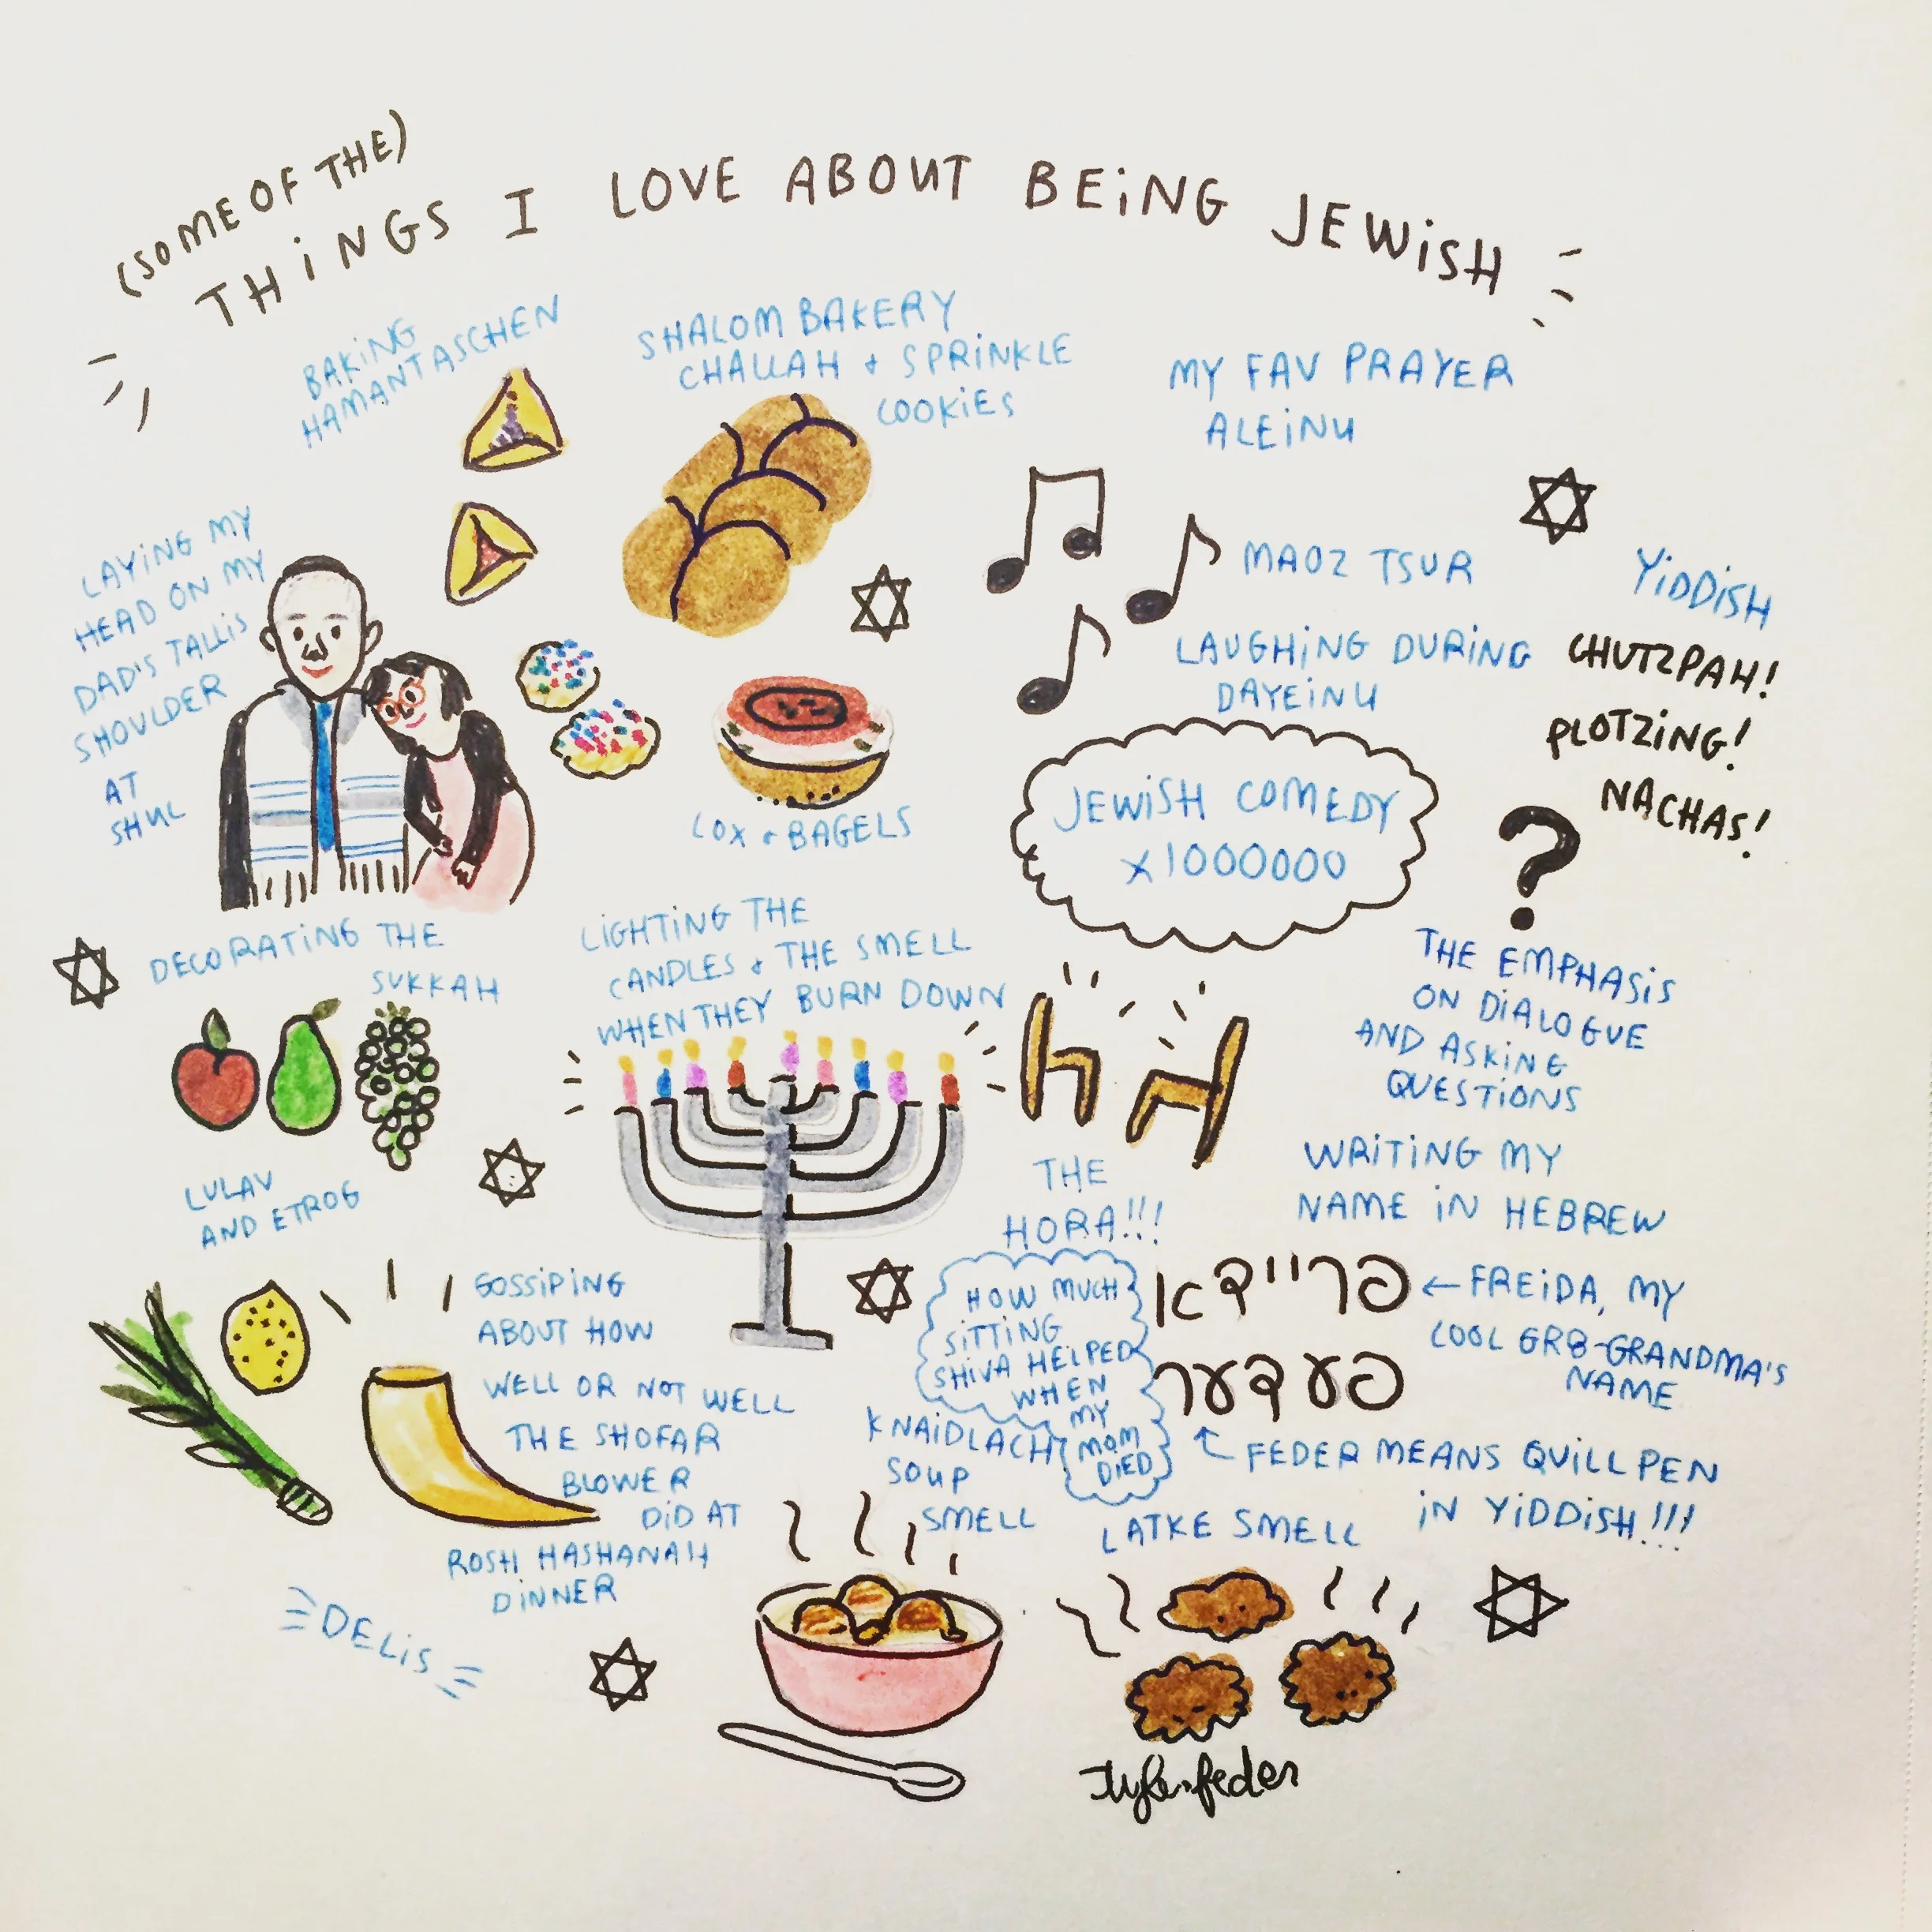 (SOME OF THE)
THINGS I LOVE ABOUT BEING JEWISH
BAKING
HAMANTASCHEN
SHALOM BAKERY
CHALLAH + SPRINKLE
COOKIES
MY FAV PRAYER
ALEINU
LAYING MY
HEAD ON MY
DAD'S TALLIS
SHOULDER
AT
SHUL
LOX + BAGELS
MAOZ TSUR
LAUGHING DURING
DAYEINU
YIDDISH
CHUTZPAH!
PLOTZING!
NACHAS!
JEWISH COMEDY
x1000000
?
THE EMPHASIS
ON DIALOGUE
AND ASKING
QUESTIONS
DECORATING THE
SUKKAH
LIGHTING THE
CANDLES + THE SMELL
WHEN THEY BURN DOWN
THE
HORA!!!
WRITING MY
NAME IN HEBREW
פריידא
← FREIDA, MY
COOL GR8-GRANDMA'S
NAME
פעדער
FEDER MEANS QUILL PEN
IN YIDDISH!!!
LULAV
AND ETROG
GOSSIPING
ABOUT HOW
WELL OR NOT WELL
THE SHOFAR
BLOWER
DID AT
ROSH HASHANAH
DINNER
HOW MUCH
SITTING
SHIVA HELPED
WHEN
MY
MOM
DIED
KNAIDLACH
SOUP
SMELL
LATKE SMELL
DELIS
Tyler feder